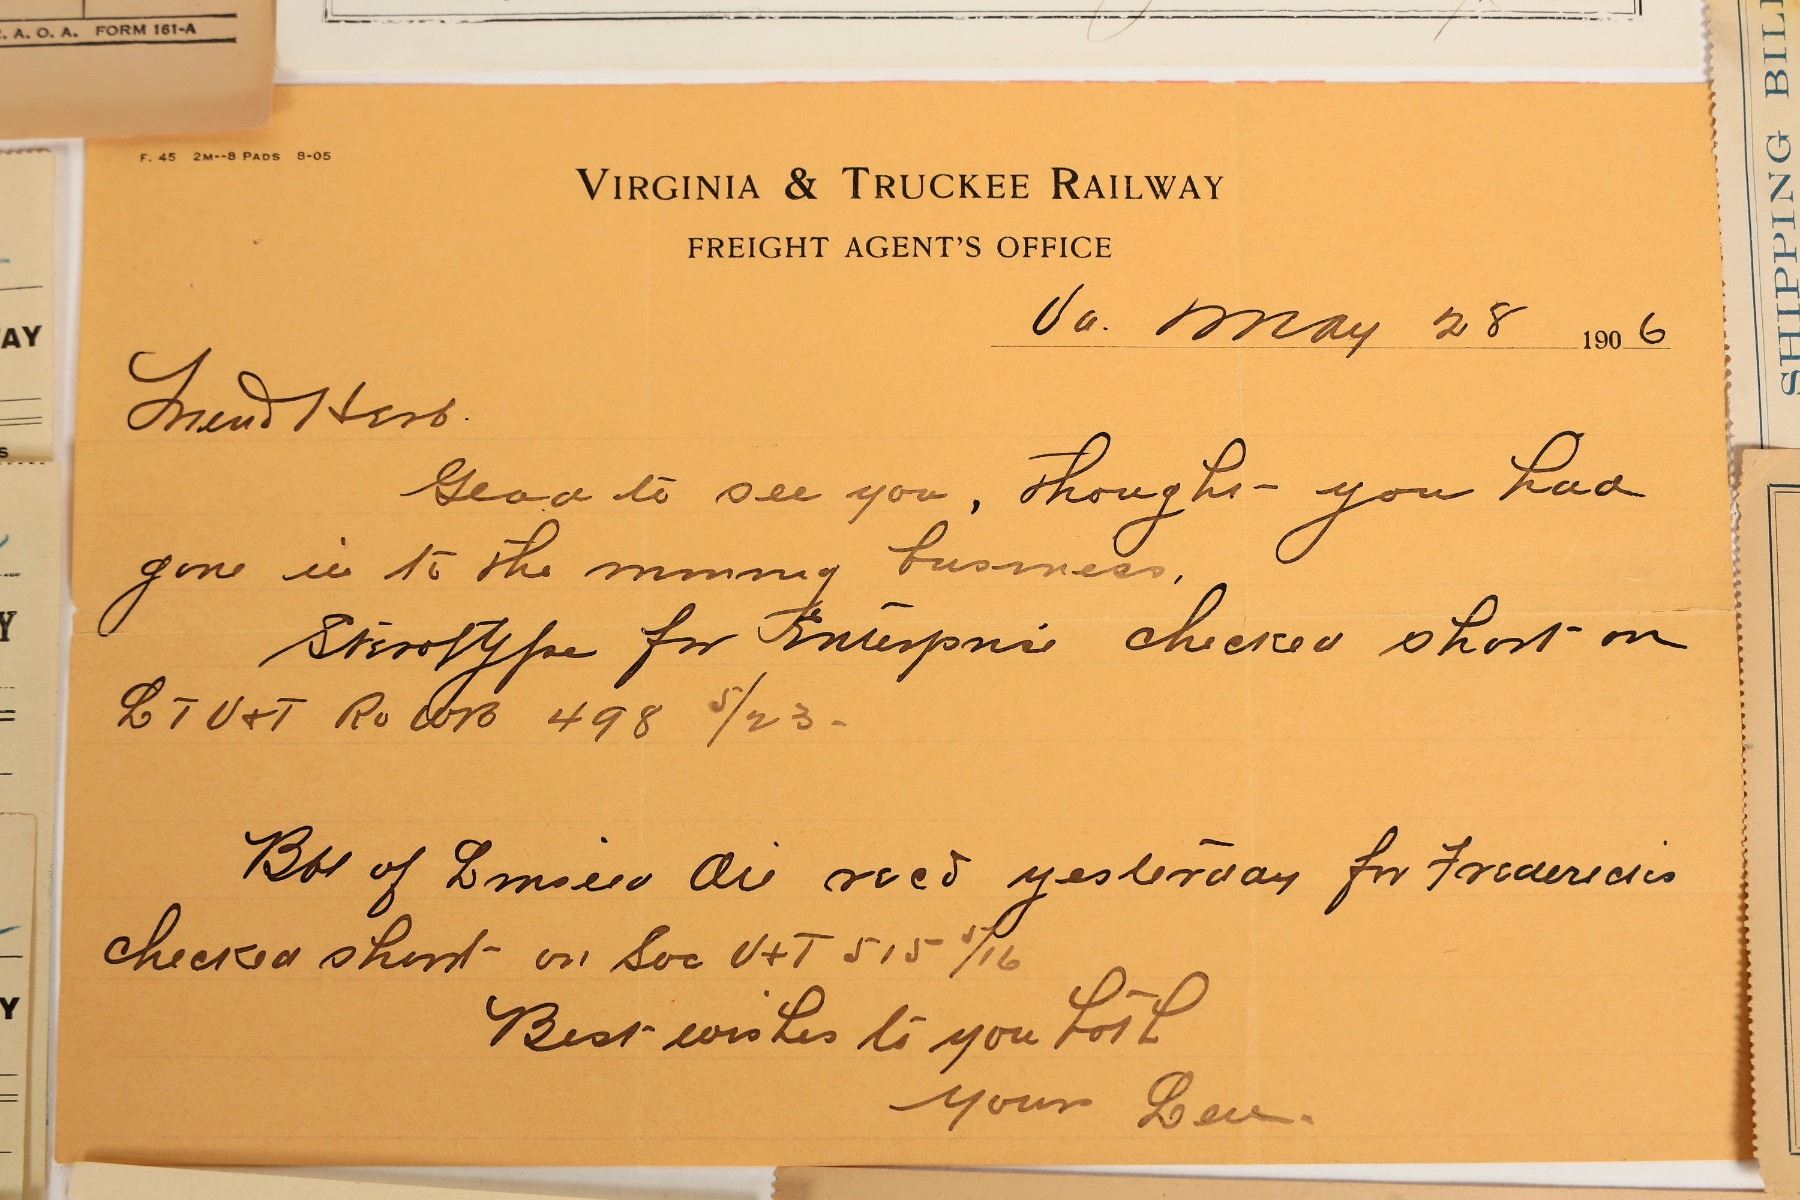 R. A. O. A. FORM 161-A
SHIPPING BILL
AY
s
Y
Y
F. 45 2M--8 PADS 8-05
VIRGINIA & TRUCKEE RAILWAY
FREIGHT AGENT'S OFFICE
Va. May 28 1906
Friend Herb.
Glad to see you, thought you had
gone in to the mining business.
Sterotype for Enterprise checked short on
L T V&T Ro WB 498 5/23-
Bbl of Linseed Oil recd yesterday for Fredericks
checked short on Soc V&T 515 5/16
Best wishes to you both
yours Lew.